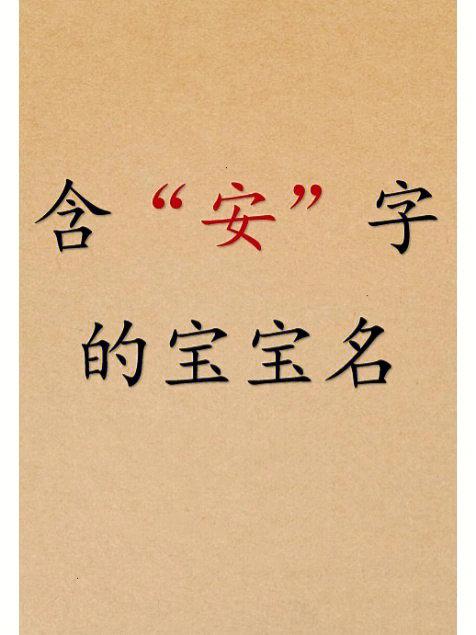 含“安”字
的宝宝名